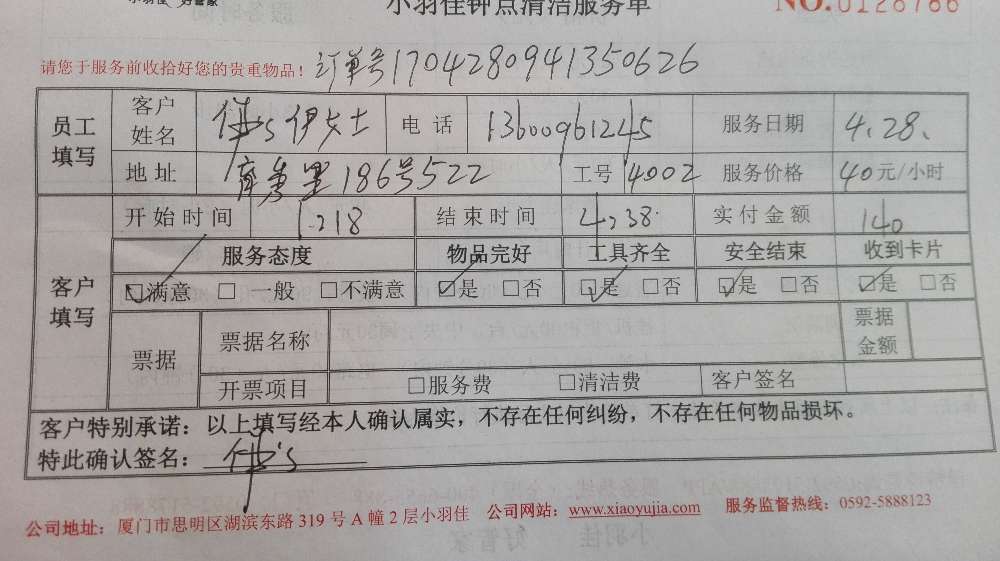 小羽佳 好管家
小羽佳钟点清洁服务单
NO.0128766
请您于服务前收拾好您的贵重物品！ 订单号1704280941350626
员工填写 客户姓名 电话 13600961245 服务日期 4.28.
地址 186号522 工号 4002 服务价格 40元/小时
开始时间 1.218 结束时间 4.238. 实付金额 140
服务态度 物品完好 工具齐全 安全结束 收到卡片
客户填写 ☑满意 □一般 □不满意 ☑是 □否 ☑是 □否 ☑是 □否 ☑是 □否
票据 票据名称 票据金额
开票项目 □服务费 □清洁费 客户签名
客户特别承诺：以上填写经本人确认属实，不存在任何纠纷，不存在任何物品损坏。
特此确认签名：
公司地址：厦门市思明区湖滨东路319号A幢2层小羽佳 公司网站：www.xiaoyujia.com 服务监督热线：0592-5888123